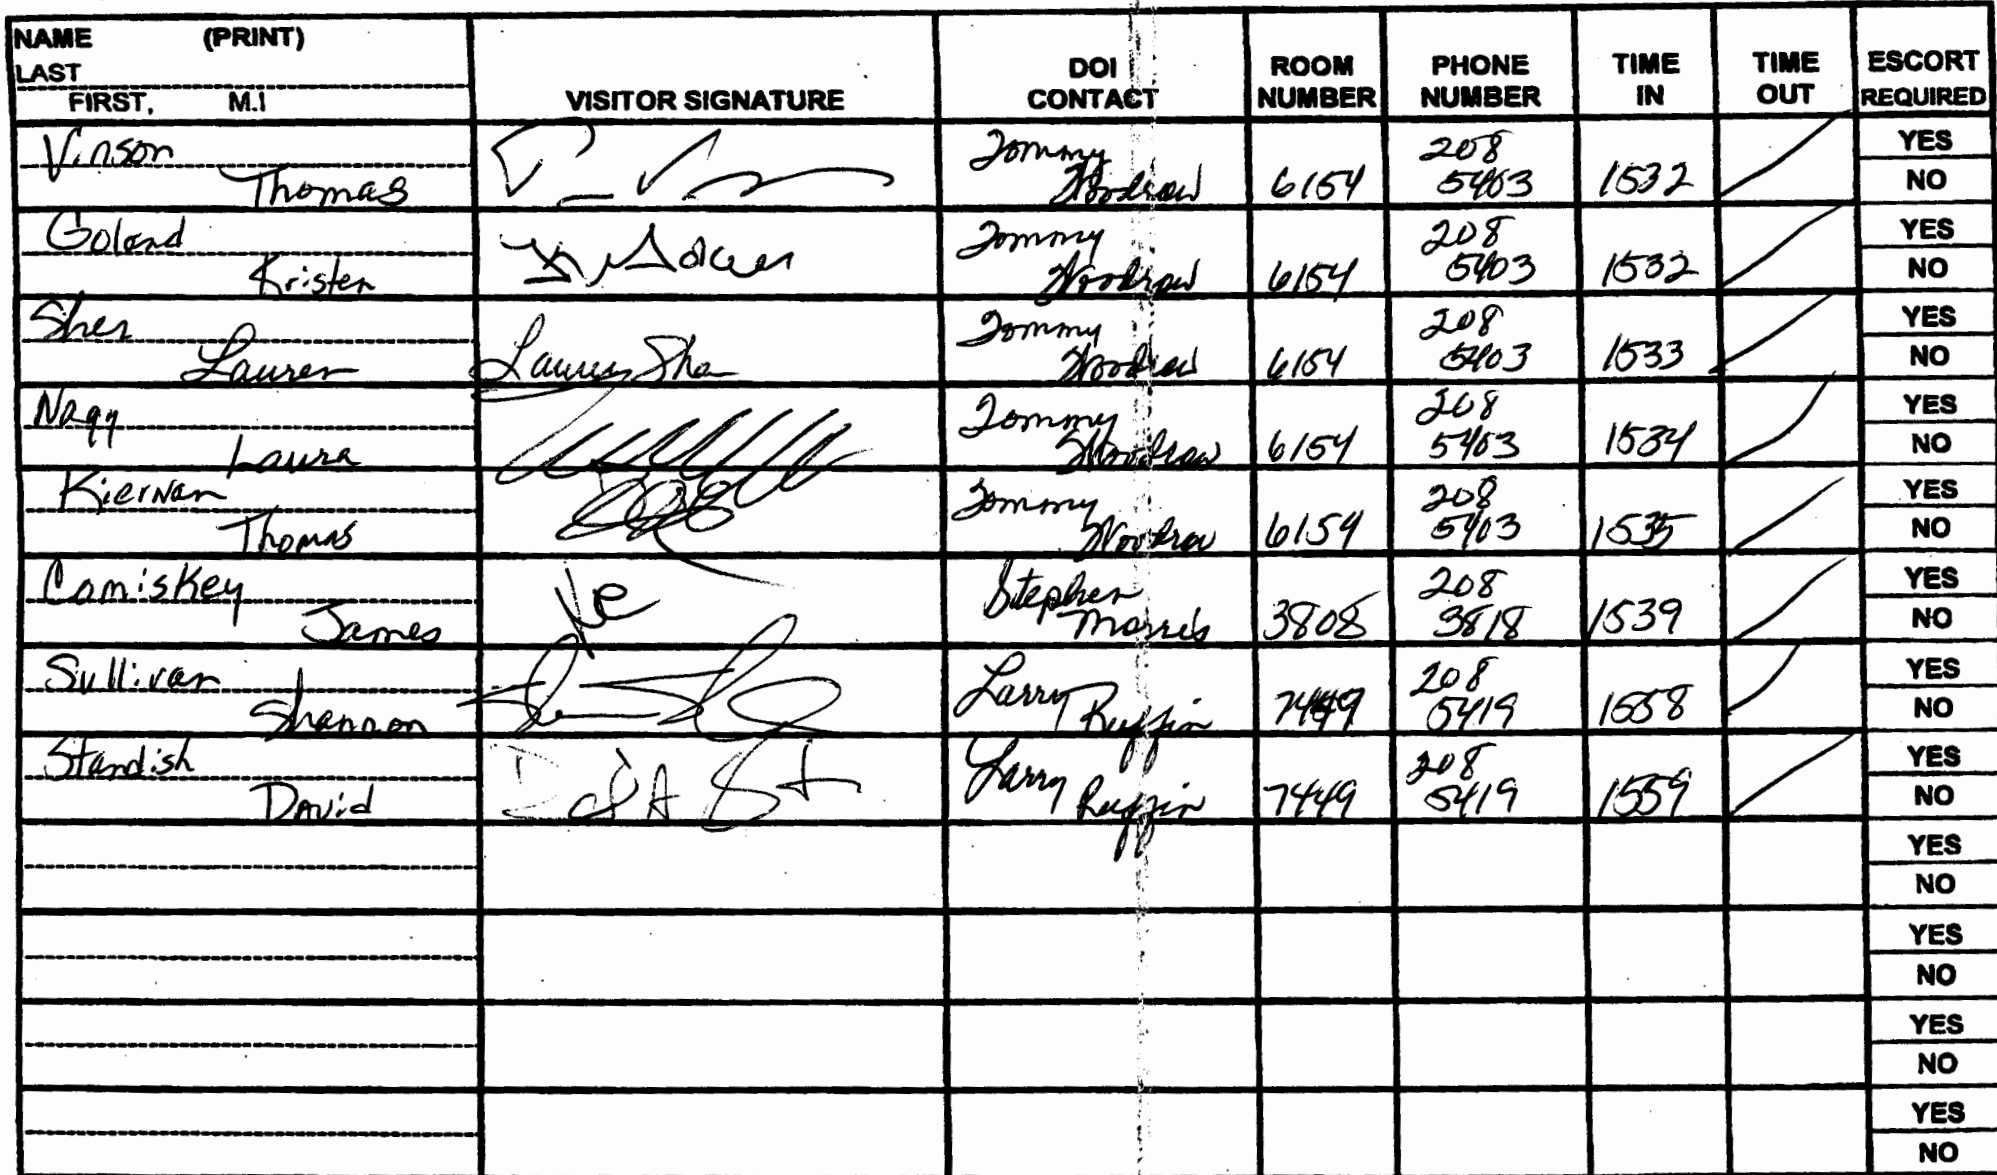 NAME (PRINT)
LAST
FIRST, M.I
VISITOR SIGNATURE
DOI CONTACT
ROOM NUMBER
PHONE NUMBER
TIME IN
TIME OUT
ESCORT REQUIRED
Vinson Thomas Tommy Woodrow 6154 208 5403 1532 YES NO
Goland Kristen Tommy Woodrow 6154 208 5403 1532 YES NO
Sher Lauren Lauren Sher Tommy Woodrow 6154 208 5403 1533 YES NO
Nagy Laura Tommy Woodrow 6154 208 5403 1534 YES NO
Kiernan Thomas Tommy Woodrow 6154 208 5403 1535 YES NO
Comiskey James Stephen Morris 3808 208 3818 1539 YES NO
Sullivan Shannon Larry Ruffin 7449 208 5419 1558 YES NO
Standish David Larry Ruffin 7449 208 5419 1559 YES NO
YES
NO
YES
NO
YES
NO
YES
NO